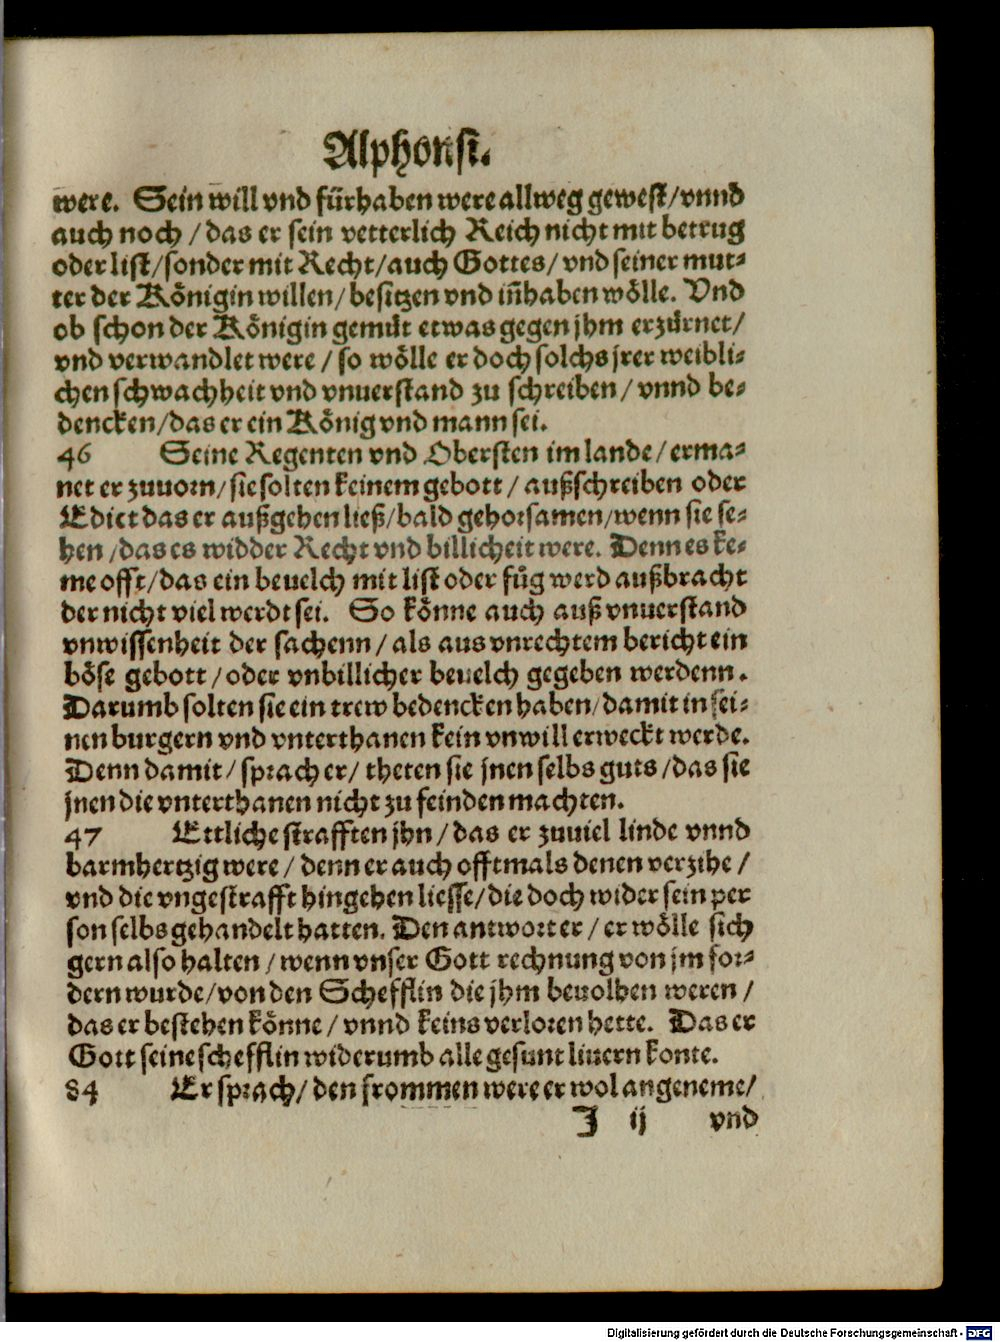 Alphonsi.
were. Sein will vnd fürhaben were allweg gewest/vnnd
auch noch /das er sein vetterlich Reich nicht mit betrug
oder list/sonder mit Recht/auch Gottes/ vnd seiner mut-
ter der Königin willen/ besitzen vnd iñhaben wölle. Vnd
ob schon der Königin gemüt etwas gegen jhm erzürnet/
vnd verwandlet were / so wölle er doch solchs jrer weibli-
chen schwachheit vnd vnuerstand zu schreiben / vnnd be-
dencken/das er ein König vnd mann sei.
46 Seine Regenten vnd Obersten im lande/ erma-
net er zuuorn/sie solten keinem gebott / außschreiben oder
Edict das er außgehen ließ/bald gehorsamen/wenn sie se-
hen /das es widder Recht vnd billicheit were. Denn es ke-
me offt/das ein beuelch mit list oder füg werd außbracht
der nicht viel werdt sei. So könne auch auß vnuerstand
vnwissenheit der sachenn / als aus vnrechtem bericht ein
böse gebott /oder vnbillicher beuelch gegeben werdenn.
Darumb solten sie ein trew bedencken haben/damit in sei-
nen burgern vnd vnterthanen kein vnwill erweckt werde.
Denn damit/ sprach er/ theten sie jnen selbs guts /das sie
jnen die vnterthanen nicht zu feinden machten.
47 Ettliche strafften jhn / das er zuuiel linde vnnd
barmhertzig were / denn er auch offtmals denen verzihe /
vnd die vngestrafft hingehen liesse/die doch wider sein per
son selbs gehandelt hatten. Den antwort er / er wölle sich
gern also halten /wenn vnser Gott rechnung von jm for-
dern wurde/von den Schefflin die jhm beuolhen weren /
das er bestehen könne / vnnd keins verloren hette. Das er
Gott seine schefflin widerumb alle gesunt liuern konte.
84 Er sprach/ den frommen were er wol angeneme/
J ij vnd
Digitalisierung gefördert durch die Deutsche Forschungsgemeinschaft - DFG